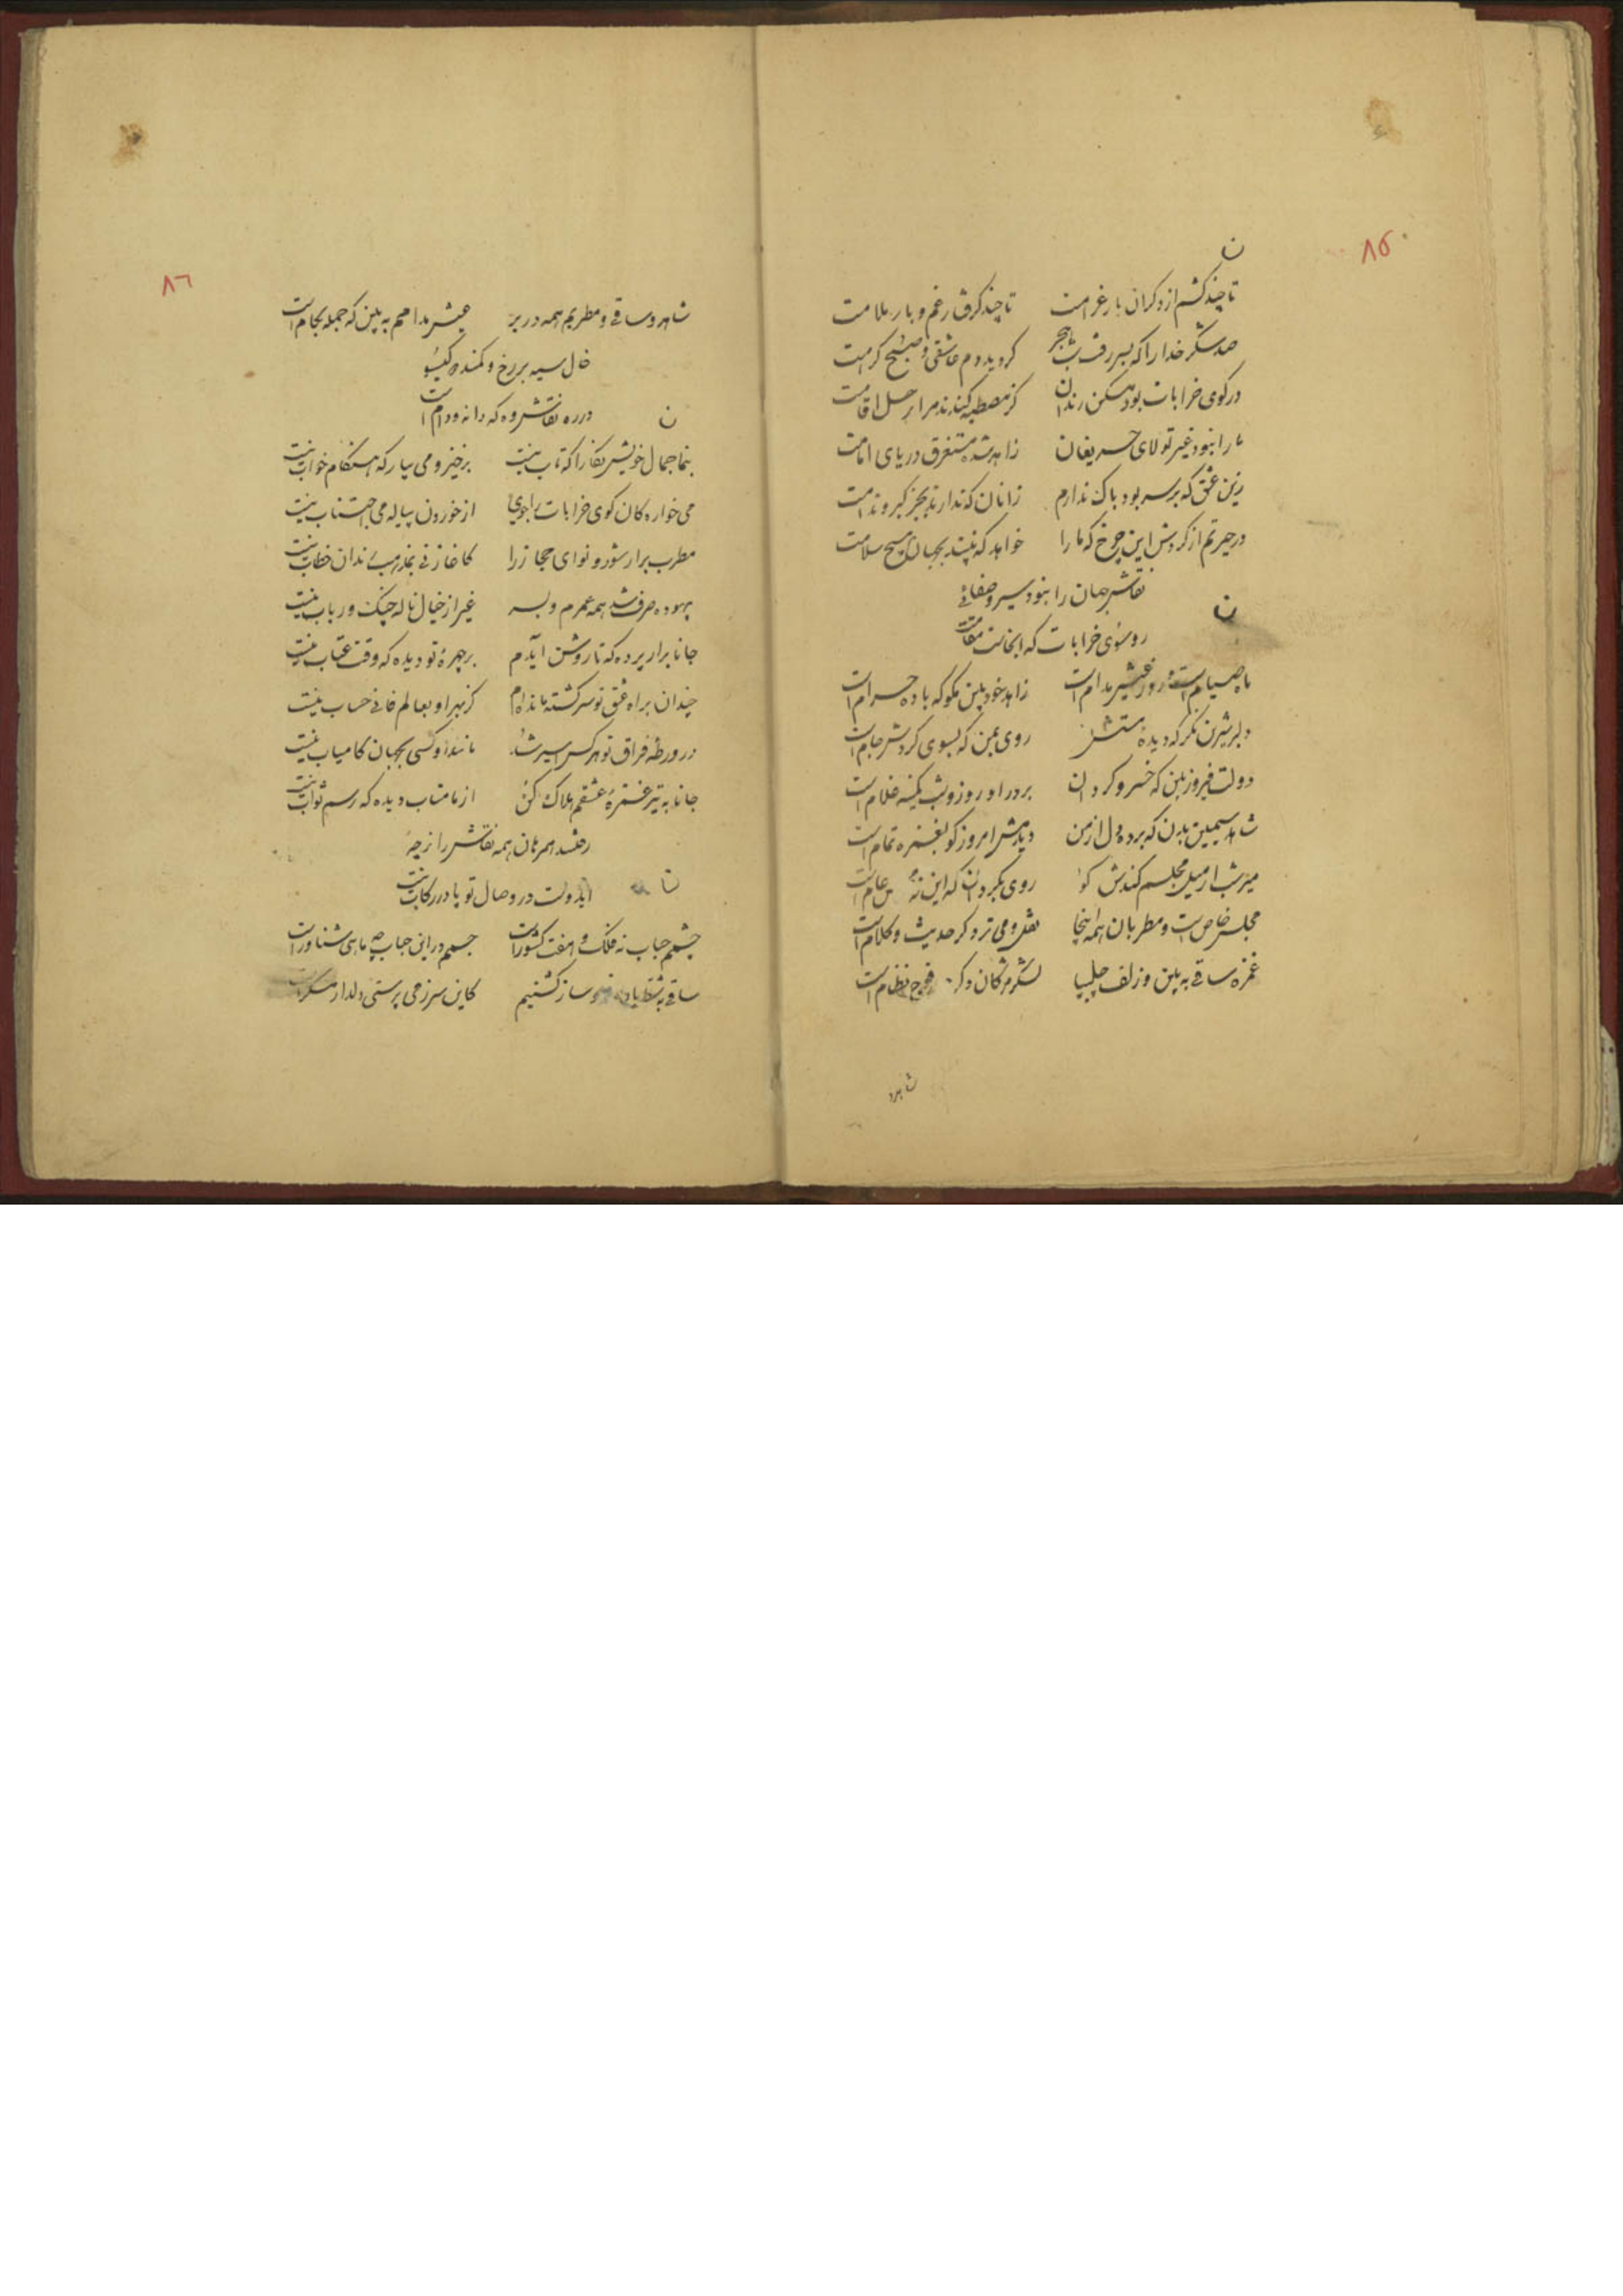 ۸۵
ن
تا چند کشم از دکران بار غرامت تا چند کرفتار غم و بار ملامت
صد شکر خدا را که بسر رفت شب هجر کردید دم عاشقی و صبح کرامت
در کوی خرابات بود مسکن رندان کز مصطبه کندند مرا رحل اقامت
ما را نبود غیر تولای حریفان زاهد شده مستغرق دریای امامت
زین عشق که بر سر بود باک ندارم زانان که ندارند بجز کبر و ندامت
در حیرتم از کردش این چرخ که ما را خواهد که نبیند بجهان هیچ سلامت
نقاش جهان را نبود سیر و صفائی
ن
رو سوی خرابات که آنجاست مقامت
ماه صیام است و روز عیش مدام است زاهد خودبین مکو که باده حرام است
دلبر شیرین نکر که دیده مستش روی بمن که بسوی کردش جام است
دولت فیروز بین که خسرو کردان بر در او روز و شب کمینه غلام است
شاهد سیمین بدن که برده دل از من دیدمش امروز کو بغمزه تمام است
میرشب ار میل مجلسم کندش کو روی بکردان که این نه عام است
مجلس خاص است و مطربان همه اینجا نقل و می تر دکر حدیث و کلام است
غمزه ساقی به بین و زلف چلیپا لشکر مژکان دکر فوج نظام است
شاهد
۸۶
شاهد و ساقی و مطربم همه در بر عیش مدامم به بین که جمله بکام است
خال سیه بر رخ و کمند دو کیسو
ن
در ره نقاش وه که دانه و دام است
بنما جمال خویش نکارا که تاب نیست برخیز و می بیار که هنکام خواب نیست
می خواره کان کوی خرابات را بجوی از خوردن پیاله می اجتناب نیست
مطرب برار شور و نوای حجاز را کاغاز نی بمذهب رندان خطاب نیست
بیهوده صرف شد همه عمرم و بسر غیر از خیال ناله چنک و رباب نیست
جانا برار پرده که تا روشن آیدم بر چهره تو دیده که وقت عتاب نیست
چندان براه عشق تو سرکشته مانده‌ام کز بهر او بعالم فانی حساب نیست
در ورطه فراق تو هر کس اسیر شد مانند او کسی بجهان کامیاب نیست
جانا به تیر غمزه عشقم هلاک کن از ما متاب دیده که رسم ثواب نیست
رفتند همرهان همه نقاش را ز چه
ن
دولت در وصال تو پا در رکاب نیست
چشمم حباب نه فلک و هفت کشور است جسمم در این حباب چه ماهی شناور است
ساقی کاین سر ز می پرستی دلدار